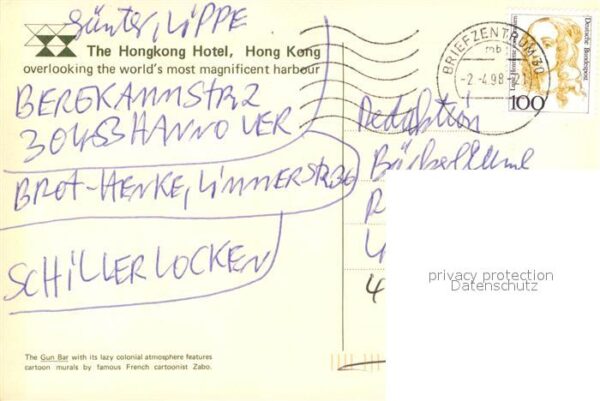 Günter, LiPPE
The Hongkong Hotel, Hong Kong
overlooking the world's most magnificent harbour
BERGKAMMSTR 2
30453 HANNOVER
BROT-HENKE, LiMMERSTR
SCHiLLERLOCKEN
The Gun Bar with its lazy colonial atmosphere features
cartoon murals by famous French cartoonist Zabo.
BRIEFZENTRUM 30
mb
-2.-4.98-21
Deutsche Bundespost
100
Redaktion
R
4
privacy protection
Datenschutz